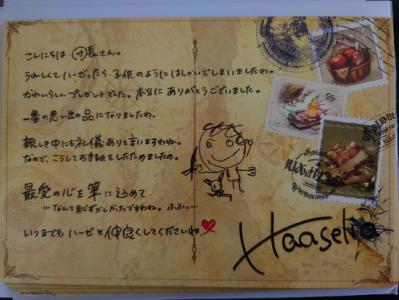 こんにちは 団長さん。
うれしくてハーゼったら、子供のようにはしゃいでしまいましたわ。
かわいらしいプレゼントでした。本当に ありがとうございました。
一番の思い出の品になりましたわ。
親しき中にも礼儀ありと言いますわね。
なので、こうしてお手紙をしたためましたの。
最愛の心を筆に込めて
…なんて恥ずかしかったですわね。ふふっ…
いつまでもハーゼと仲良くしてくださいね
Haaselia